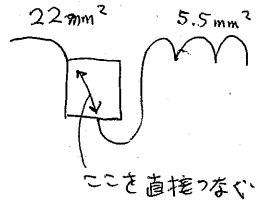 22mm²
5.5mm²
ここを直接つなぐ